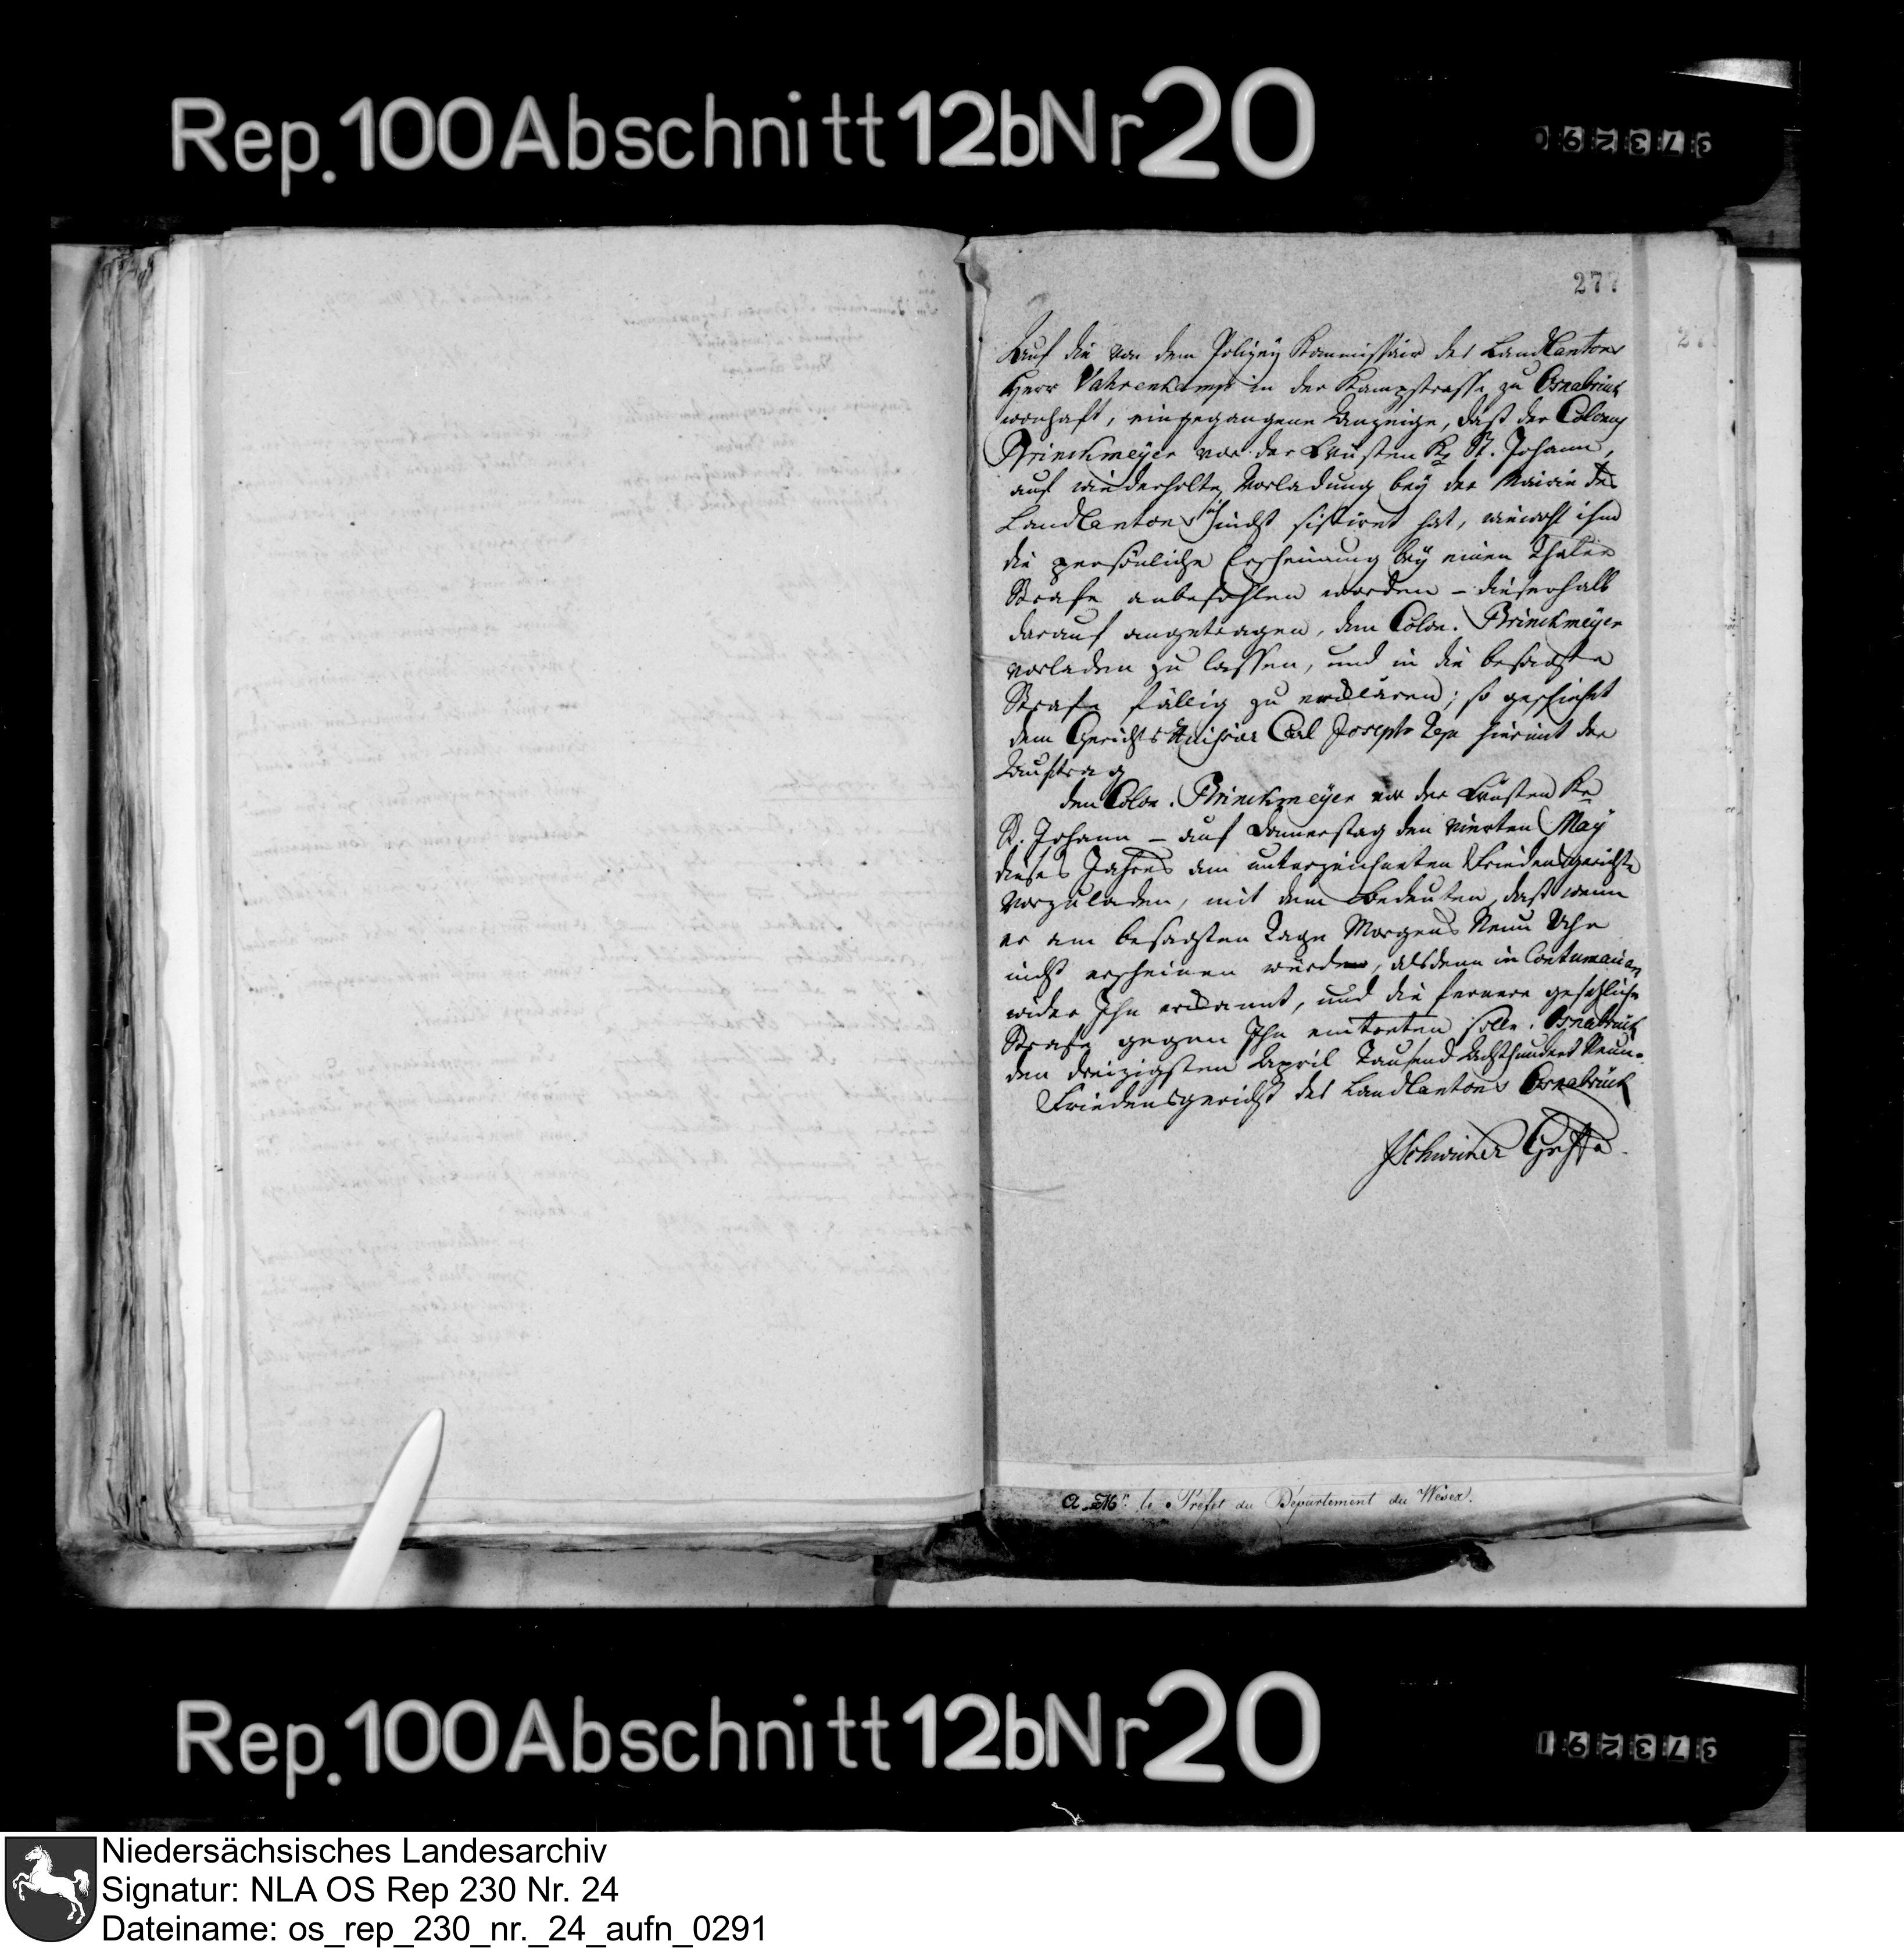 Rep. 100 Abschnitt 12b Nr 20
277
Auf die von dem Polizey Kommissair des LandCantons
Herr Vahrenkamp in der Kampstrasse zu Osnabrück
wonhaft, eingegangene Anzeige, daß der Colonus
Brinckmeyer vor der Lüsten St. Johann,
auf wiederholte Vorladung bey der Mairie des
LandCantons sich nicht sistiret hat, wiewohl ihm
die persönliche Erscheinung bey einen Thaler
Strafe anbefohlen worden – dieserhalb
darauf angetragen, den Colon. Brinckmeyer
vorladen zu lassen, und in die besagte
Strafe fällig zu erclären; so geschiehet
dem Gerichts Huissier Carl Joseph hiermit der
Auftrag
den Colon. Brinckmeyer vor der Lüsten
St. Johann – auf Donnerstag den vierten May
dieses Jahres am unterzeichneten Friedensgerichte
vorzuladen, mit dem Bedeuten, daß wenn
er am besagten Tage Morgens Neun Uhr
nicht erscheinen würde, alsdenn in Contumaciam
wider Ihn ercannt, und die fernere gesetzliche
Strafe gegen Ihn eintreten solle. Osnabrück
den dreizigsten April Tausend Achthundert Neun.
Friedensgericht des LandCantons Osnabrück
A Mr. le Préfet du Département du Weser.
Rep. 100 Abschnitt 12b Nr 20
Niedersächsisches Landesarchiv
Signatur: NLA OS Rep 230 Nr. 24
Dateiname: os_rep_230_nr._24_aufn_0291